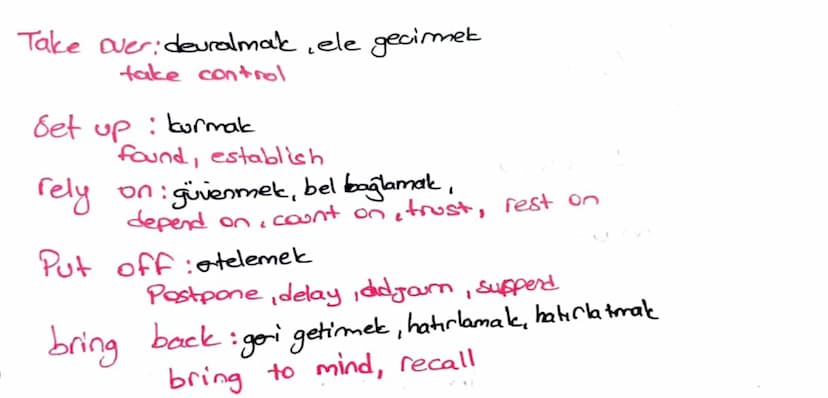 Take over: devralmak, ele gecirmek
take control
Set up : kurmak
found, establish
rely on: güvenmek, bel bağlamak,
depend on, count on, trust, rest on
Put off : otelemek
Postpone, delay, adjarn, suspend
bring back : geri getirmek, hatırlamak, hatırlatmak
bring to mind, recall